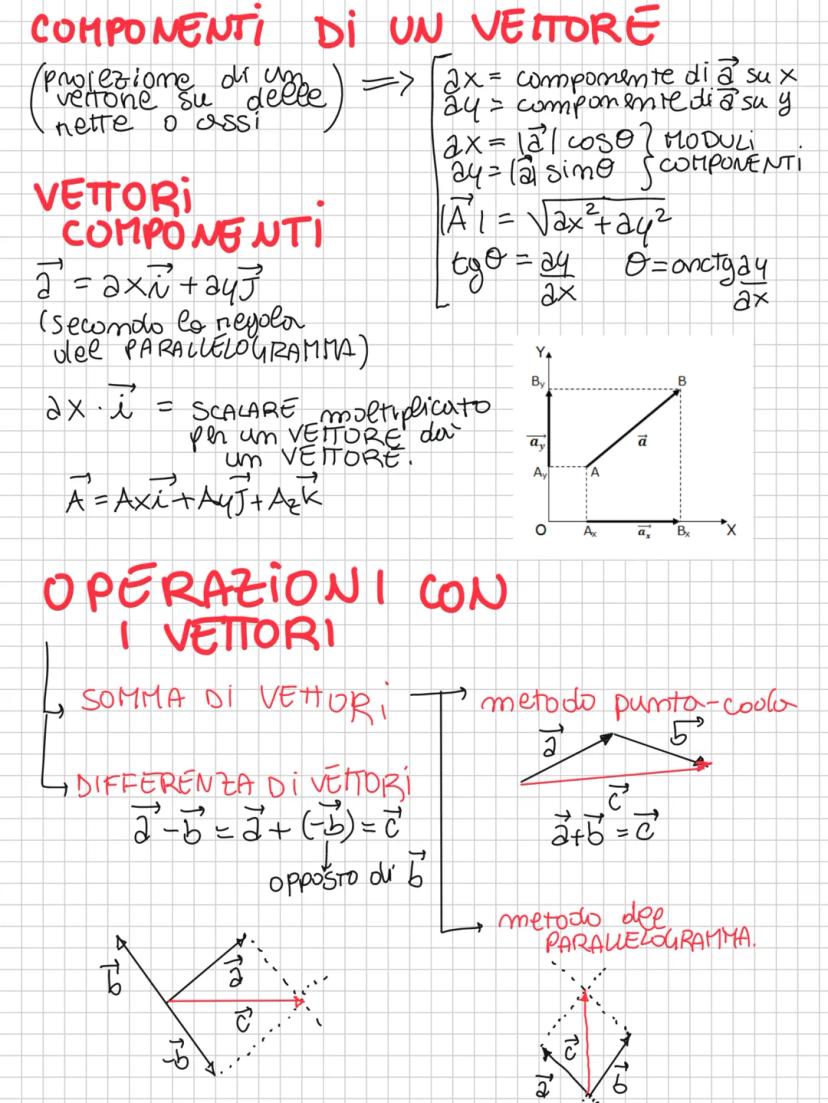 COMPONENTI DI UN VETTORE
(proiezione di un
vettore su delle
rette o assi)
⟹
ax = componente di a⃗ su x
ay = componente di a⃗ su y
ax = |a⃗| cosθ
ay = |a⃗| sinθ
} MODULI
COMPONENTI
|A⃗| = √ax²+ay²
tgθ = ay/ax θ = arctg ay/ax
VETTORI
COMPONENTI
a⃗ = axi⃗ + ayJ⃗
(secondo la regola
del PARALLELOGRAMMA)
ax · i⃗ = SCALARE moltiplicato
per un VETTORE da
un VETTORE.
A⃗ = Axi⃗ + AyJ⃗ + Azk⃗
Y
By B
a⃗y a⃗
Ay A
O Ax a⃗x Bx X
OPERAZIONI CON
I VETTORI
SOMMA DI VETTORI
metodo punta-coda
a⃗ b⃗
c⃗
a⃗+b⃗ = c⃗
DIFFERENZA DI VETTORI
a⃗ - b⃗ = a⃗ + (-b⃗) = c⃗
opposto di b⃗
metodo del
PARALLELOGRAMMA.
b⃗ a⃗
c⃗
-b⃗
c⃗
a⃗ b⃗